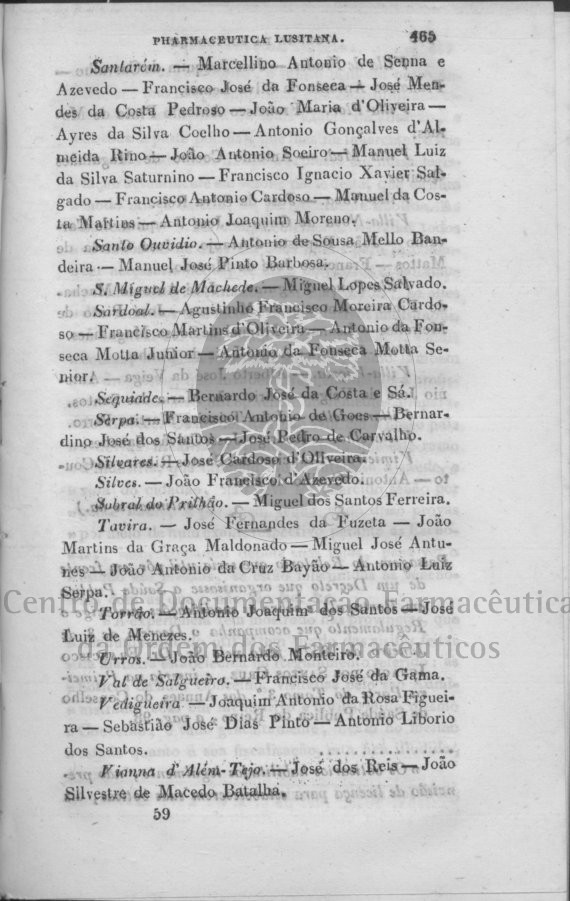 PHARMACEUTICA LUSITANA. 465
Santarém. — Marcellino Antonio de Senna e
Azevedo — Francisco José da Fonseca — José Men-
des da Costa Pedroso — João Maria d'Oliveira —
Ayres da Silva Coelho — Antonio Gonçalves d'Al-
meida Rino — João Antonio Soeiro — Manuel Luiz
da Silva Saturnino — Francisco Ignacio Xavier Sal-
gado — Francisco Antonio Cardoso — Manuel da Cos-
ta Martins — Antonio Joaquim Moreno.
Santo Ouvidio. — Antonio de Sousa Mello Ban-
deira — Manuel José Pinto Barbosa.
S. Miguel de Machede. — Miguel Lopes Salvado.
Sardoal. — Agustinho Francisco Moreira Cardo-
so — Francisco Martins d'Oliveira — Antonio da Fon-
seca Motta Junior — Antonio da Fonseca Motta Se-
nior.
Sequiade. — Bernardo José da Costa e Sá.
Serpa. — Francisco Antonio de Goes — Bernar-
dino José dos Santos — José Pedro de Carvalho.
Silvares. — José Cardoso d'Oliveira.
Silves. — João Francisco d'Azevedo.
Subral do Prilhão. — Miguel dos Santos Ferreira.
Tavira. — José Fernandes da Fuzeta — João
Martins da Graça Maldonado — Miguel José Antu-
nes — João Antonio da Cruz Bayão — Antonio Luiz
Serpa.
Centro de Documentação Farmacêutica
Torrão. — Antonio Joaquim dos Santos — José
Luiz de Menezes.
da Ordem dos Farmacêuticos
Urros. — João Bernardo Monteiro.
Val de Salgueiro. — Francisco José da Gama.
Vedigueira — Joaquim Antonio da Rosa Figuei-
ra — Sebastião José Dias Pinto — Antonio Liborio
dos Santos.
Vianna d'Além-Tejo. — José dos Reis — João
Silvestre de Macedo Batalha.
59